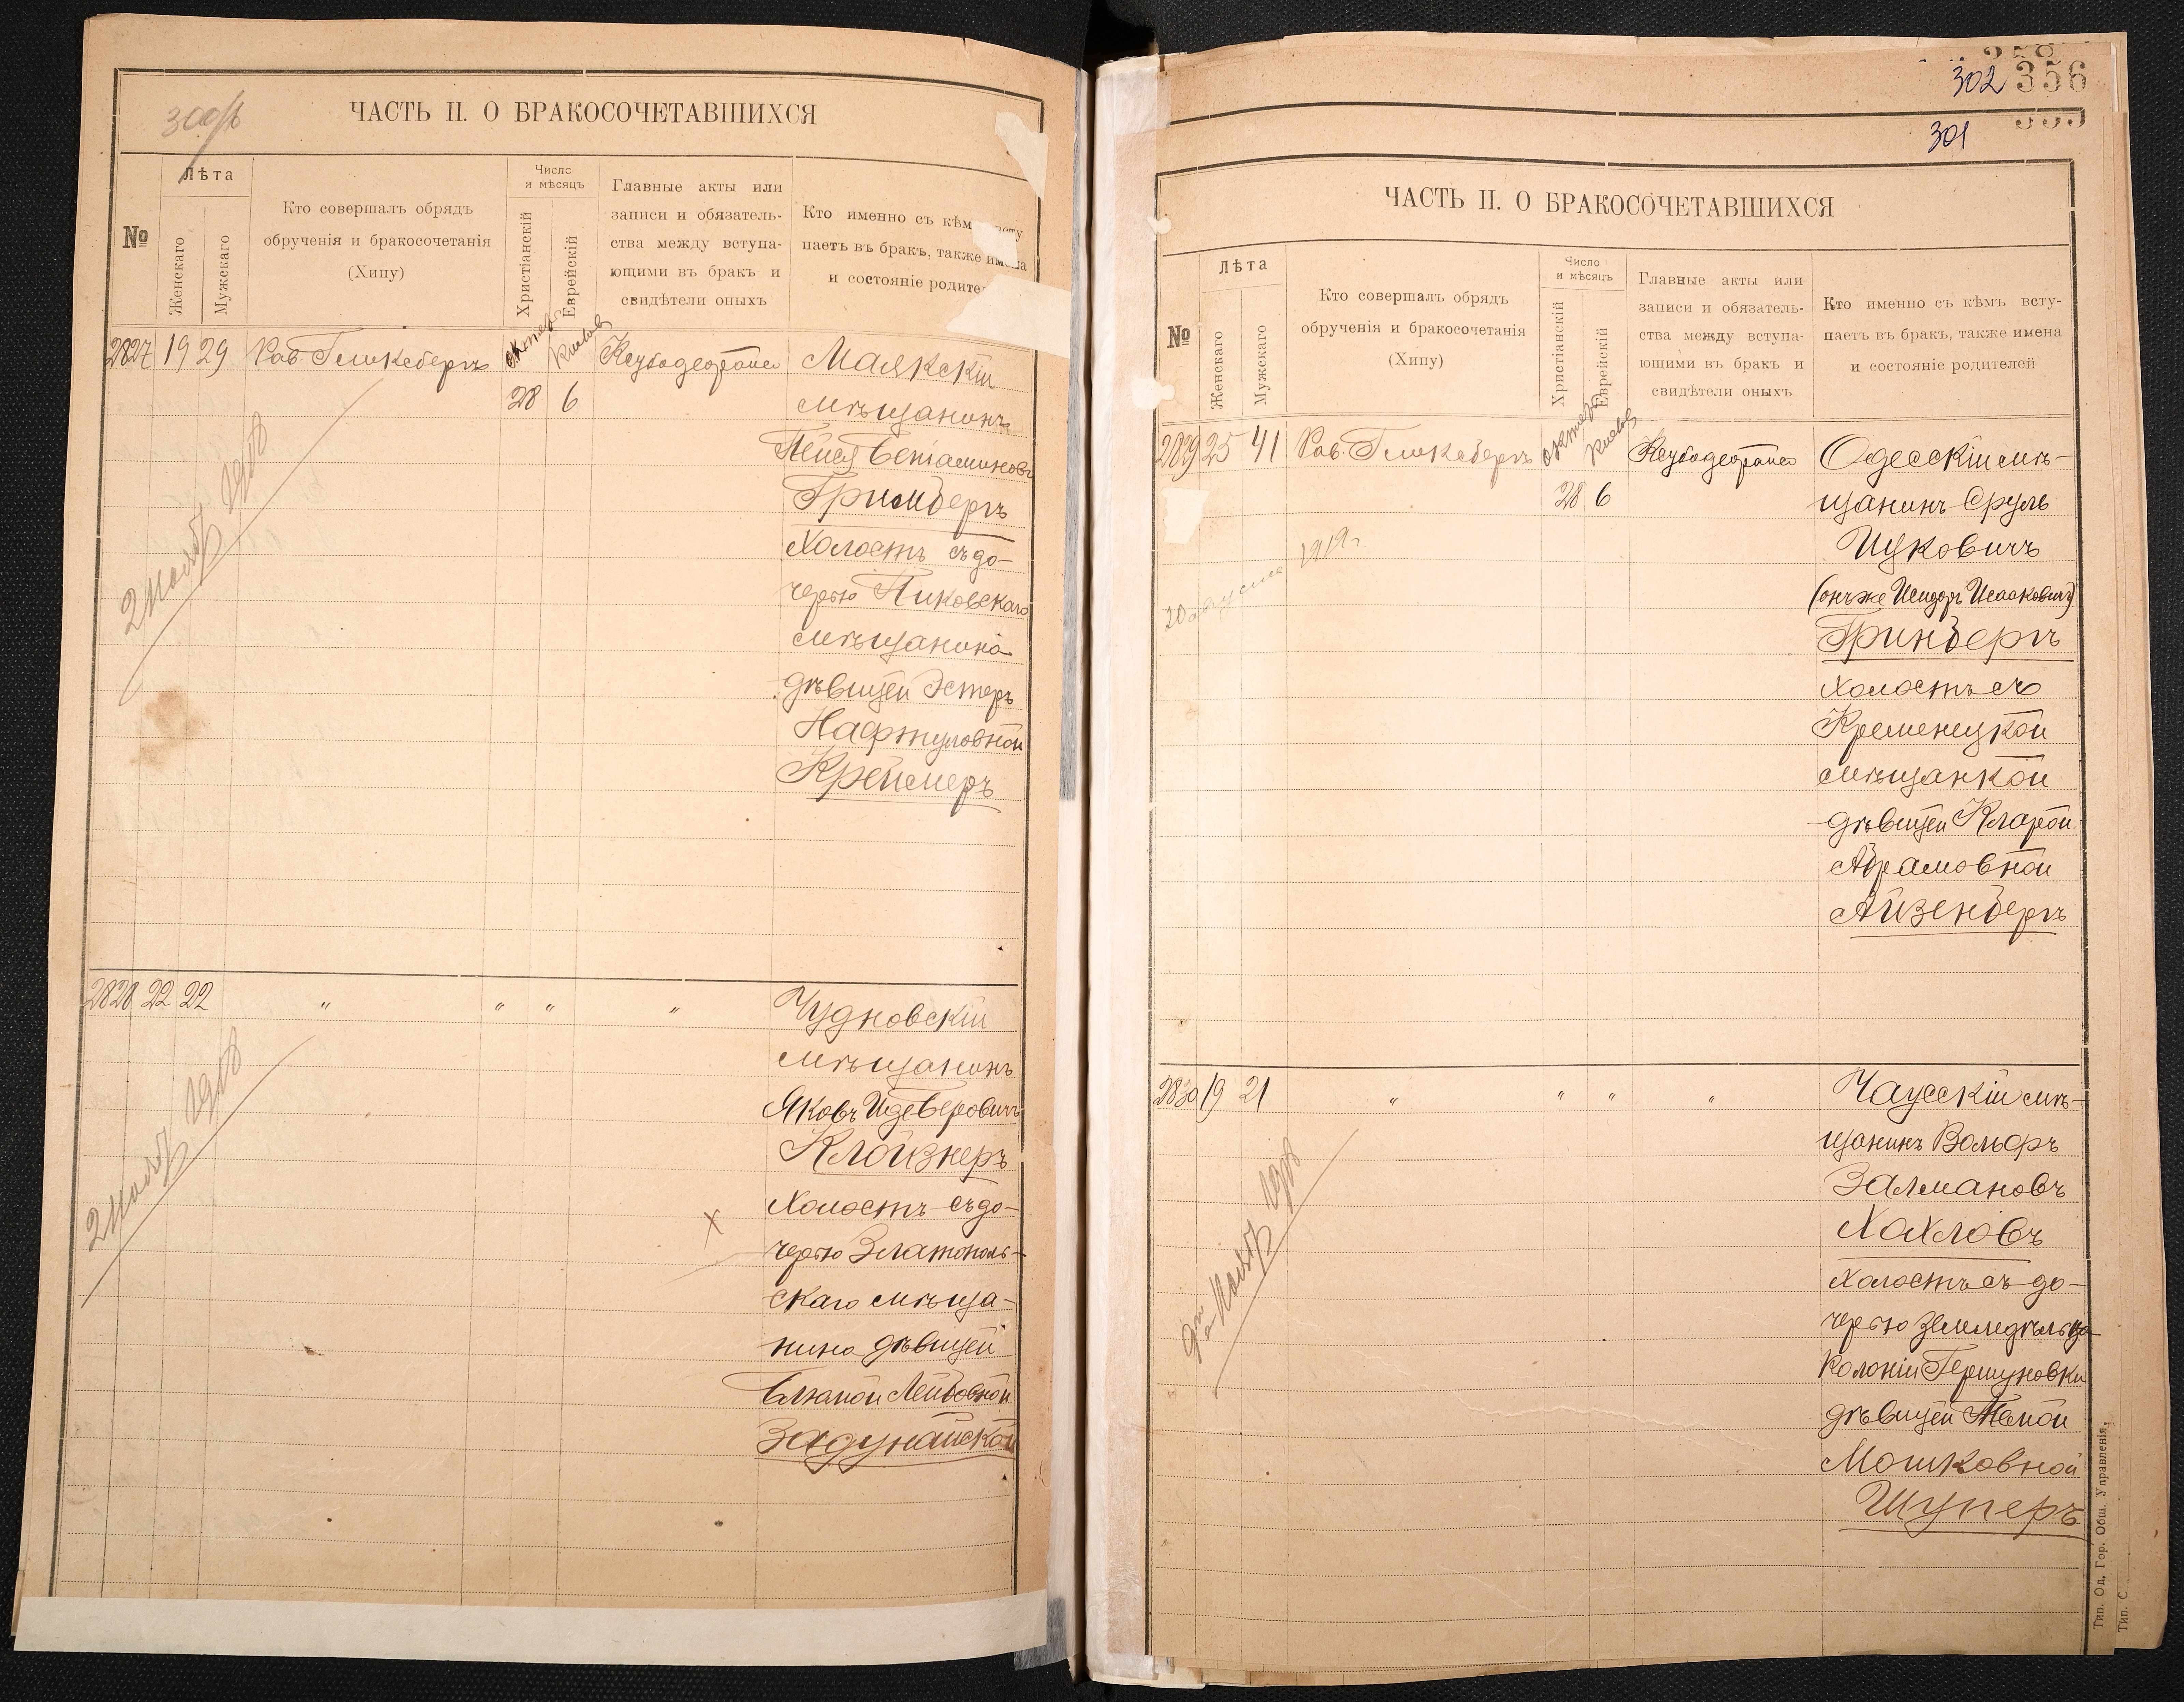 300/ь
ЧАСТЬ II. О БРАКОСОЧЕТАВШИХСЯ
№
Лѣта
Женскаго
Мужскаго
Кто совершалъ обрядъ
обрученія и бракосочетанія
(Хипу)
Число
и мѣсяцъ
Христіанскій
Еврейскій
Главные акты или
записи и обязатель-
ства между вступа-
ющими въ бракъ и
свидѣтели оныхъ
Кто именно съ кѣм
паетъ въ бракъ, также
и состояніе родите
2827 19 29 Рав. Гликсбергъ Кисловъ Маякскій
28 6 мѣщанинъ
Пейся Беніаминовъ
Гринбергъ
Холостъ съ до-
черью Пиковскаго
мѣщанина
дѣвицей Эстеръ
Нафтуловной
Креймеръ
2828 22 22 " " " " Чудновскій
мѣщанинъ
Яковъ
Клойзнеръ
Холостъ съ до-
черью Златополь-
скаго мѣща-
нина дѣвицей
Блюмой Лейбовной
Задунайской
302 356
301
ЧАСТЬ II. О БРАКОСОЧЕТАВШИХСЯ
№
Лѣта
Женскаго
Мужскаго
Кто совершалъ обрядъ
обрученія и бракосочетанія
(Хипу)
Число
и мѣсяцъ
Христіанскій
Еврейскій
Главные акты или
записи и обязатель-
ства между вступа-
ющими въ бракъ и
свидѣтели оныхъ
Кто именно съ кѣмъ всту-
паетъ въ бракъ, также имена
и состояніе родителей
2829 25 41 Рав. Гликсбергъ Кисловъ Одесскій мѣ-
28 6 щанинъ Сруль
Ицковичъ
(онъ же Исидоръ Исааковичъ)
Гринбергъ
холостъ съ
Кременецкой
мѣщанкой
дѣвицей Кларой
Абрамовной
Айзенбергъ
20 августа 1919 г.
2830 19 21 " " " " Чаусскій мѣ-
щанинъ Вольфъ
Залмановъ
Хохловъ
холостъ съ до-
черью земледѣльца
колоніи Гершуновки
дѣвицей
Мошковной
Шуперъ
Тип. Од. Гор. Общ. Управленія.
Тип. С